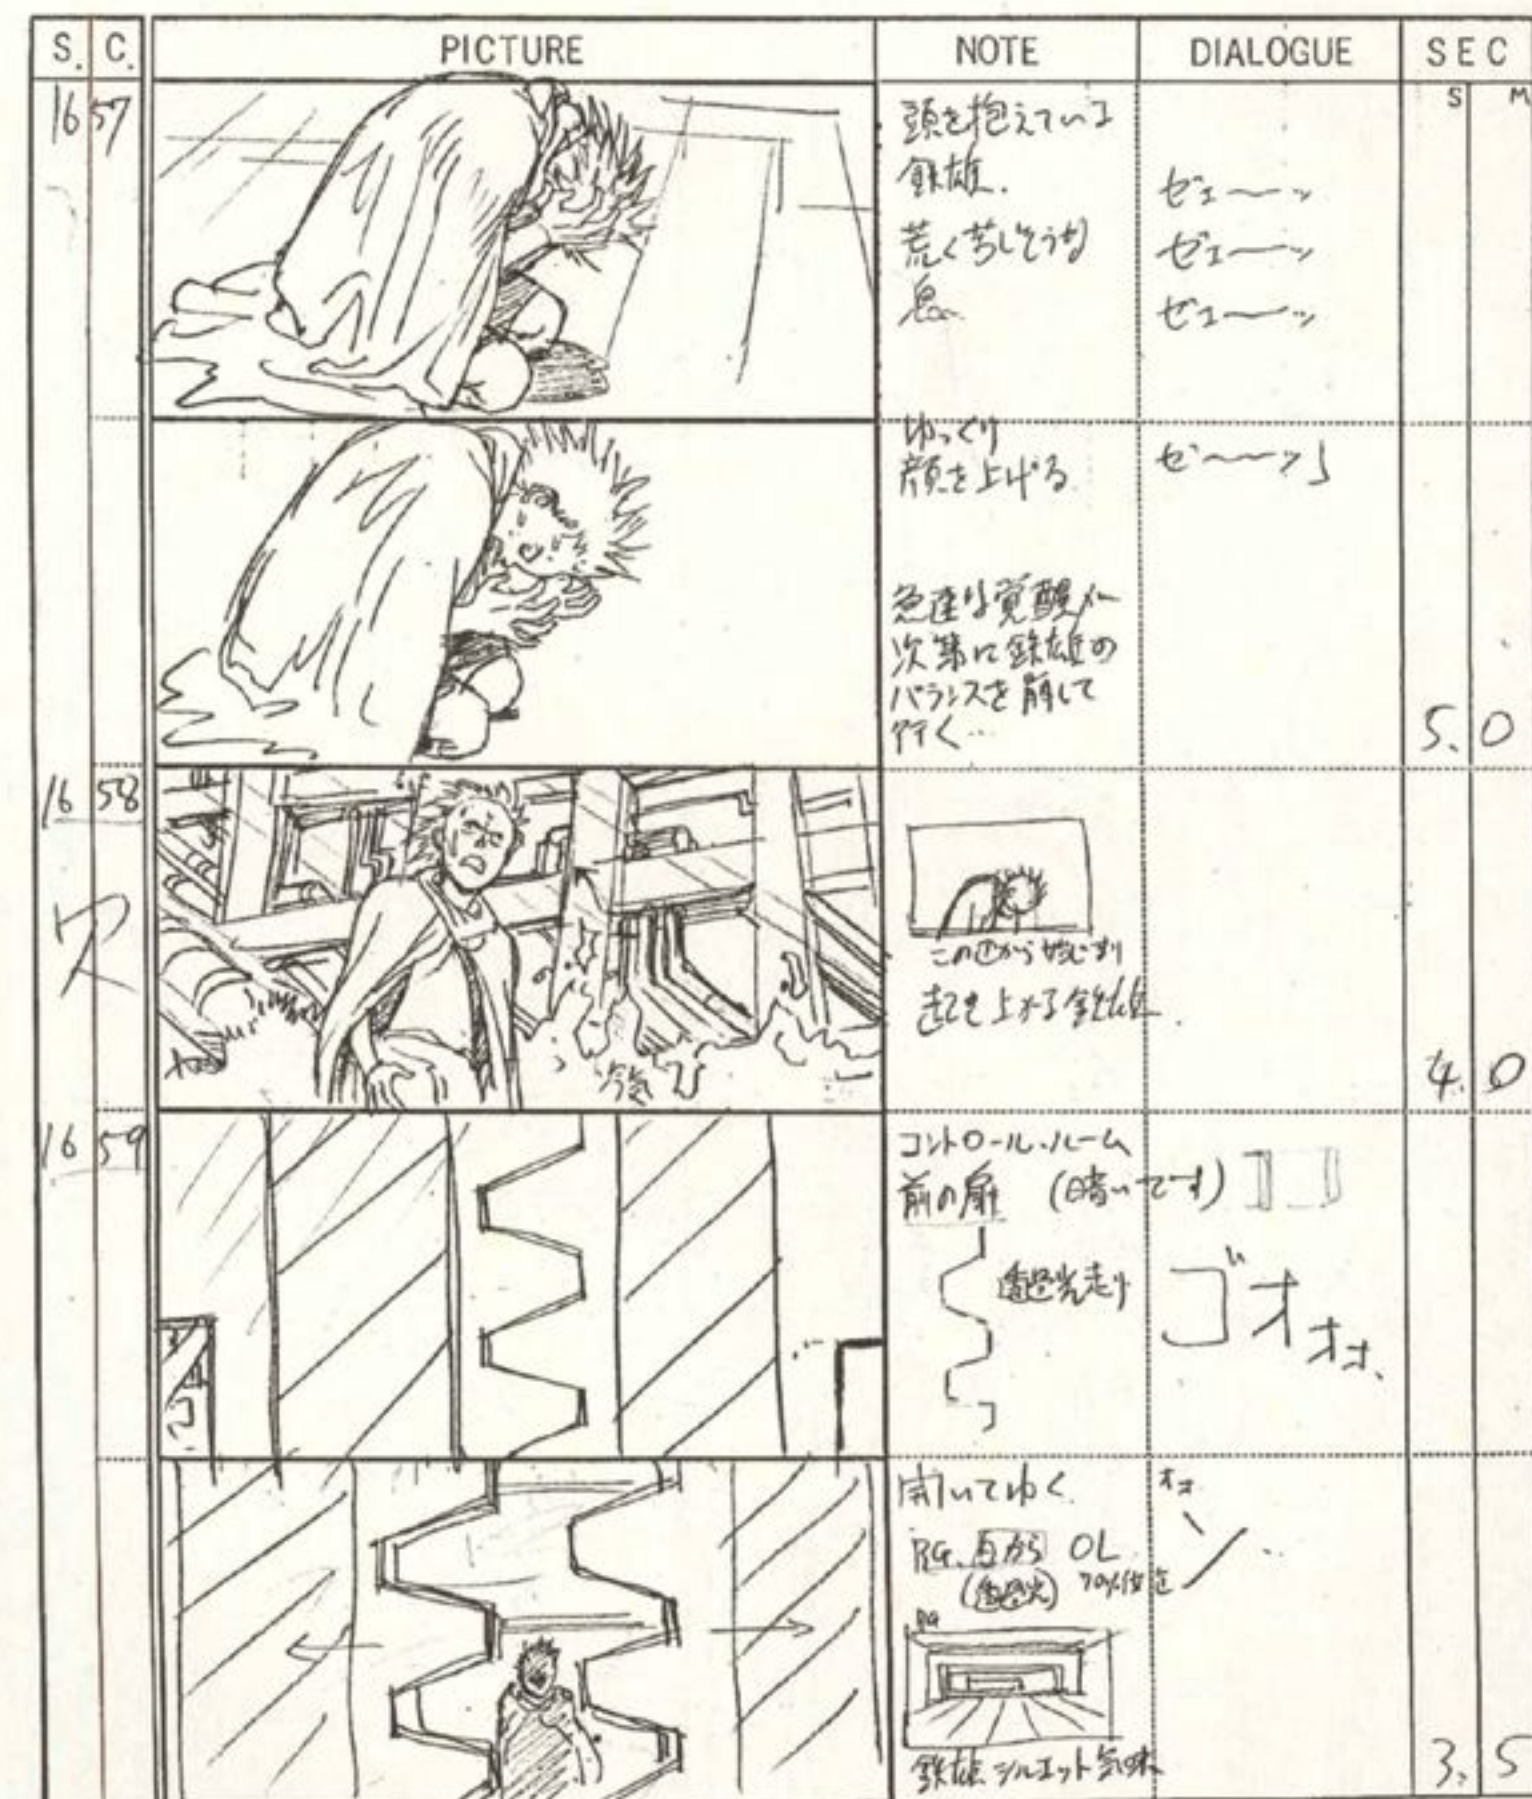 S. C. PICTURE NOTE DIALOGUE SEC
S M
16 57
頭を抱えている
鉄雄.
荒く苦しそうな
息
ゼェ〜〜ッ
ゼェ〜〜ッ
ゼェ〜〜ッ
ゆっくり
顔を上げる
ゼ〜〜〜ッ」
急速な覚醒が
次第に鉄雄の
バランスを崩して
行く…
5.0
16 58
冷気
この位から始まり
起き上がる鉄雄.
4.0
16 59
コントロール・ルーム
前の扉 (暗いです)
透過光走り
ゴオォォ、
開いてゆく
BG. 白から OL
(透過光) 70%位迄
BG
ォォ
ン‥
鉄雄 シルエット気味
3.5